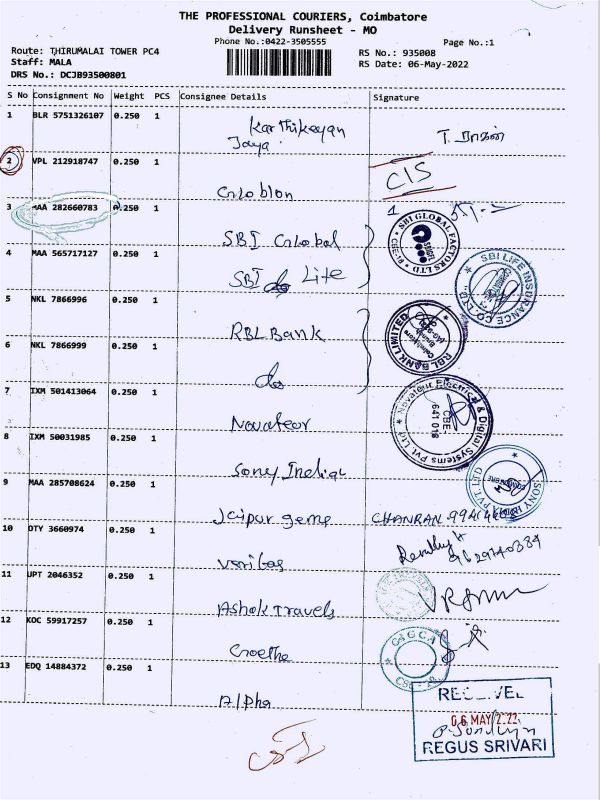 THE PROFESSIONAL COURIERS, Coimbatore
Delivery Runsheet - MO
Phone No.:0422-3505555
Page No.:1
Route: THIRUMALAI TOWER PC4
RS No.: 935008
Staff: MALA
RS Date: 06-May-2022
DRS No.: DCJB93500801
S No Consignment No Weight PCS Consignee Details Signature
1 BLR 5751326107 0.250 1 Karthikeyan
Jaya T. ராகன்
2 VPL 212918747 0.250 1
Globlon C/S
3 MAA 282660783 0.250 1
SBI Global SBI GLOBAL FACTORS LTD CBE-18
4 MAA 565717127 0.250 1
SBI do Life SBI LIFE INSURANCE CO. LTD
5 NKL 7866996 0.250 1
RBL Bank RBL BANK LIMITED
6 NKL 7866999 0.250 1
do
7 IXM 501413064 0.250 1
Novateur Novateur Electrical & Digital Systems Pvt. Ltd. CBE-641 018
8 IXM 50031985 0.250 1
Sony Indian SONY INDIA PVT. LTD
9 MAA 285708624 0.250 1
Jaipur gems CHANRAN
10 OTY 3660974 0.250 1
Veritas 9629140339
11 UPT 2046352 0.250 1
Ashok Travels
12 KOC 59917257 0.250 1
Groethe
13 EDQ 14884372 0.250 1
Alpha
RECEIVED
06 MAY 2022
REGUS SRIVARI